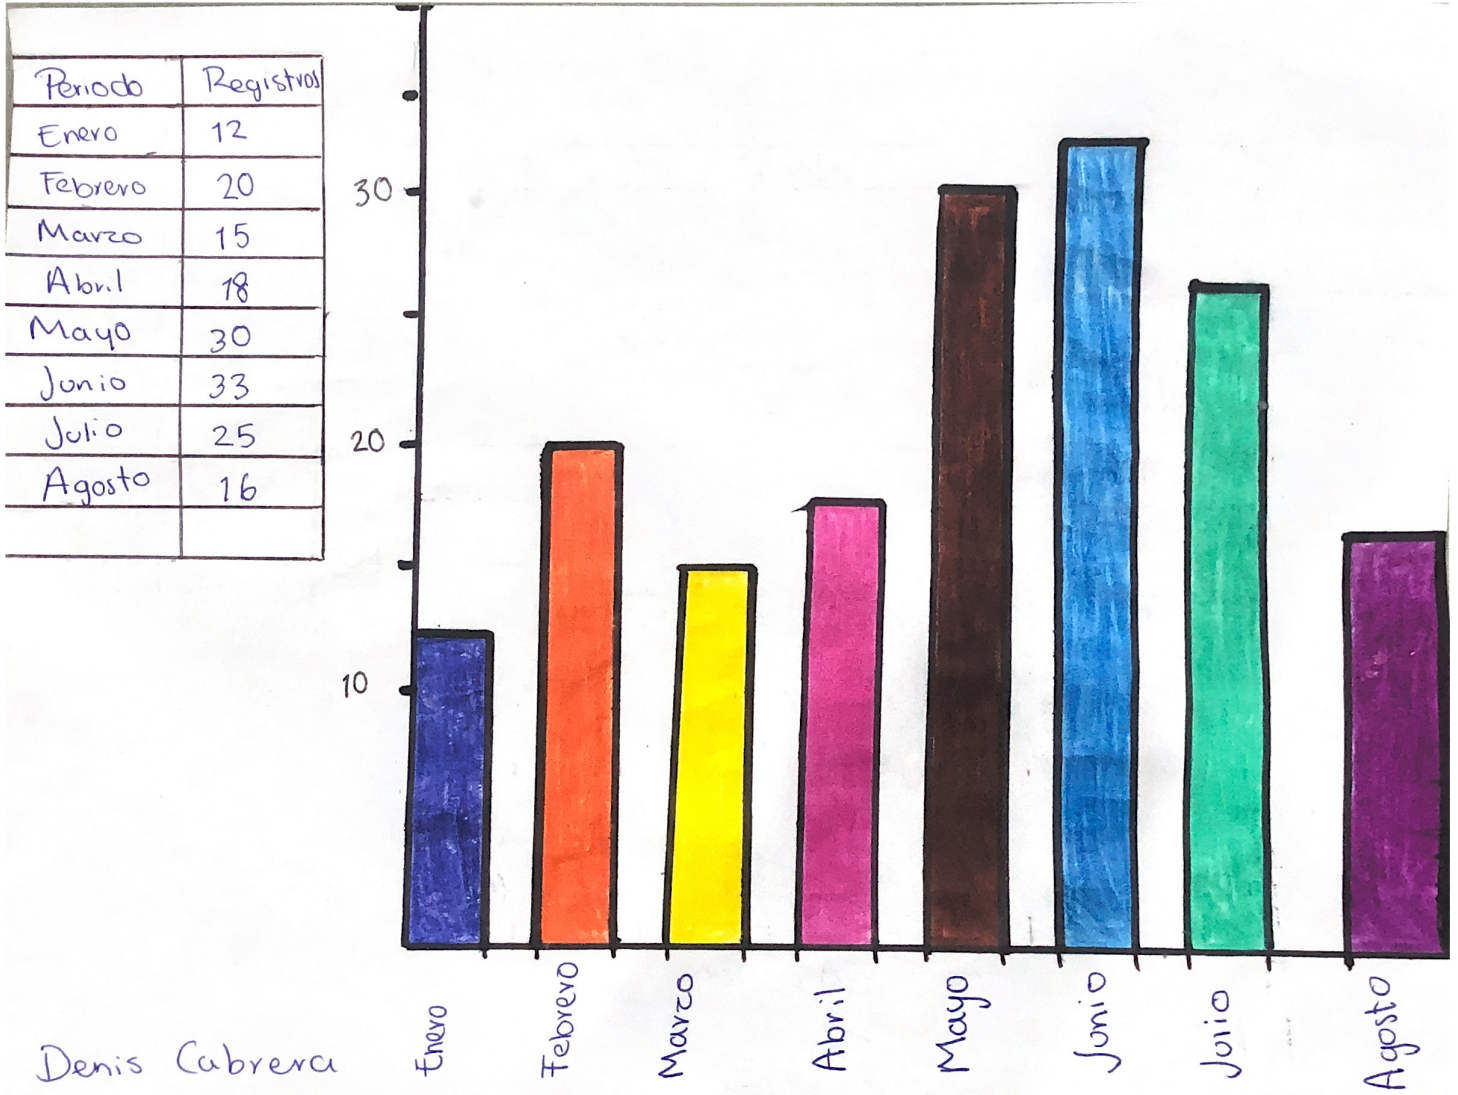 Periodo Registros
Enero 12
Febrero 20
Marzo 15
Abril 18
Mayo 30
Junio 33
Julio 25
Agosto 16
30
20
10
Enero
Febrero
Marzo
Abril
Mayo
Junio
Julio
Agosto
Denis Cabrera